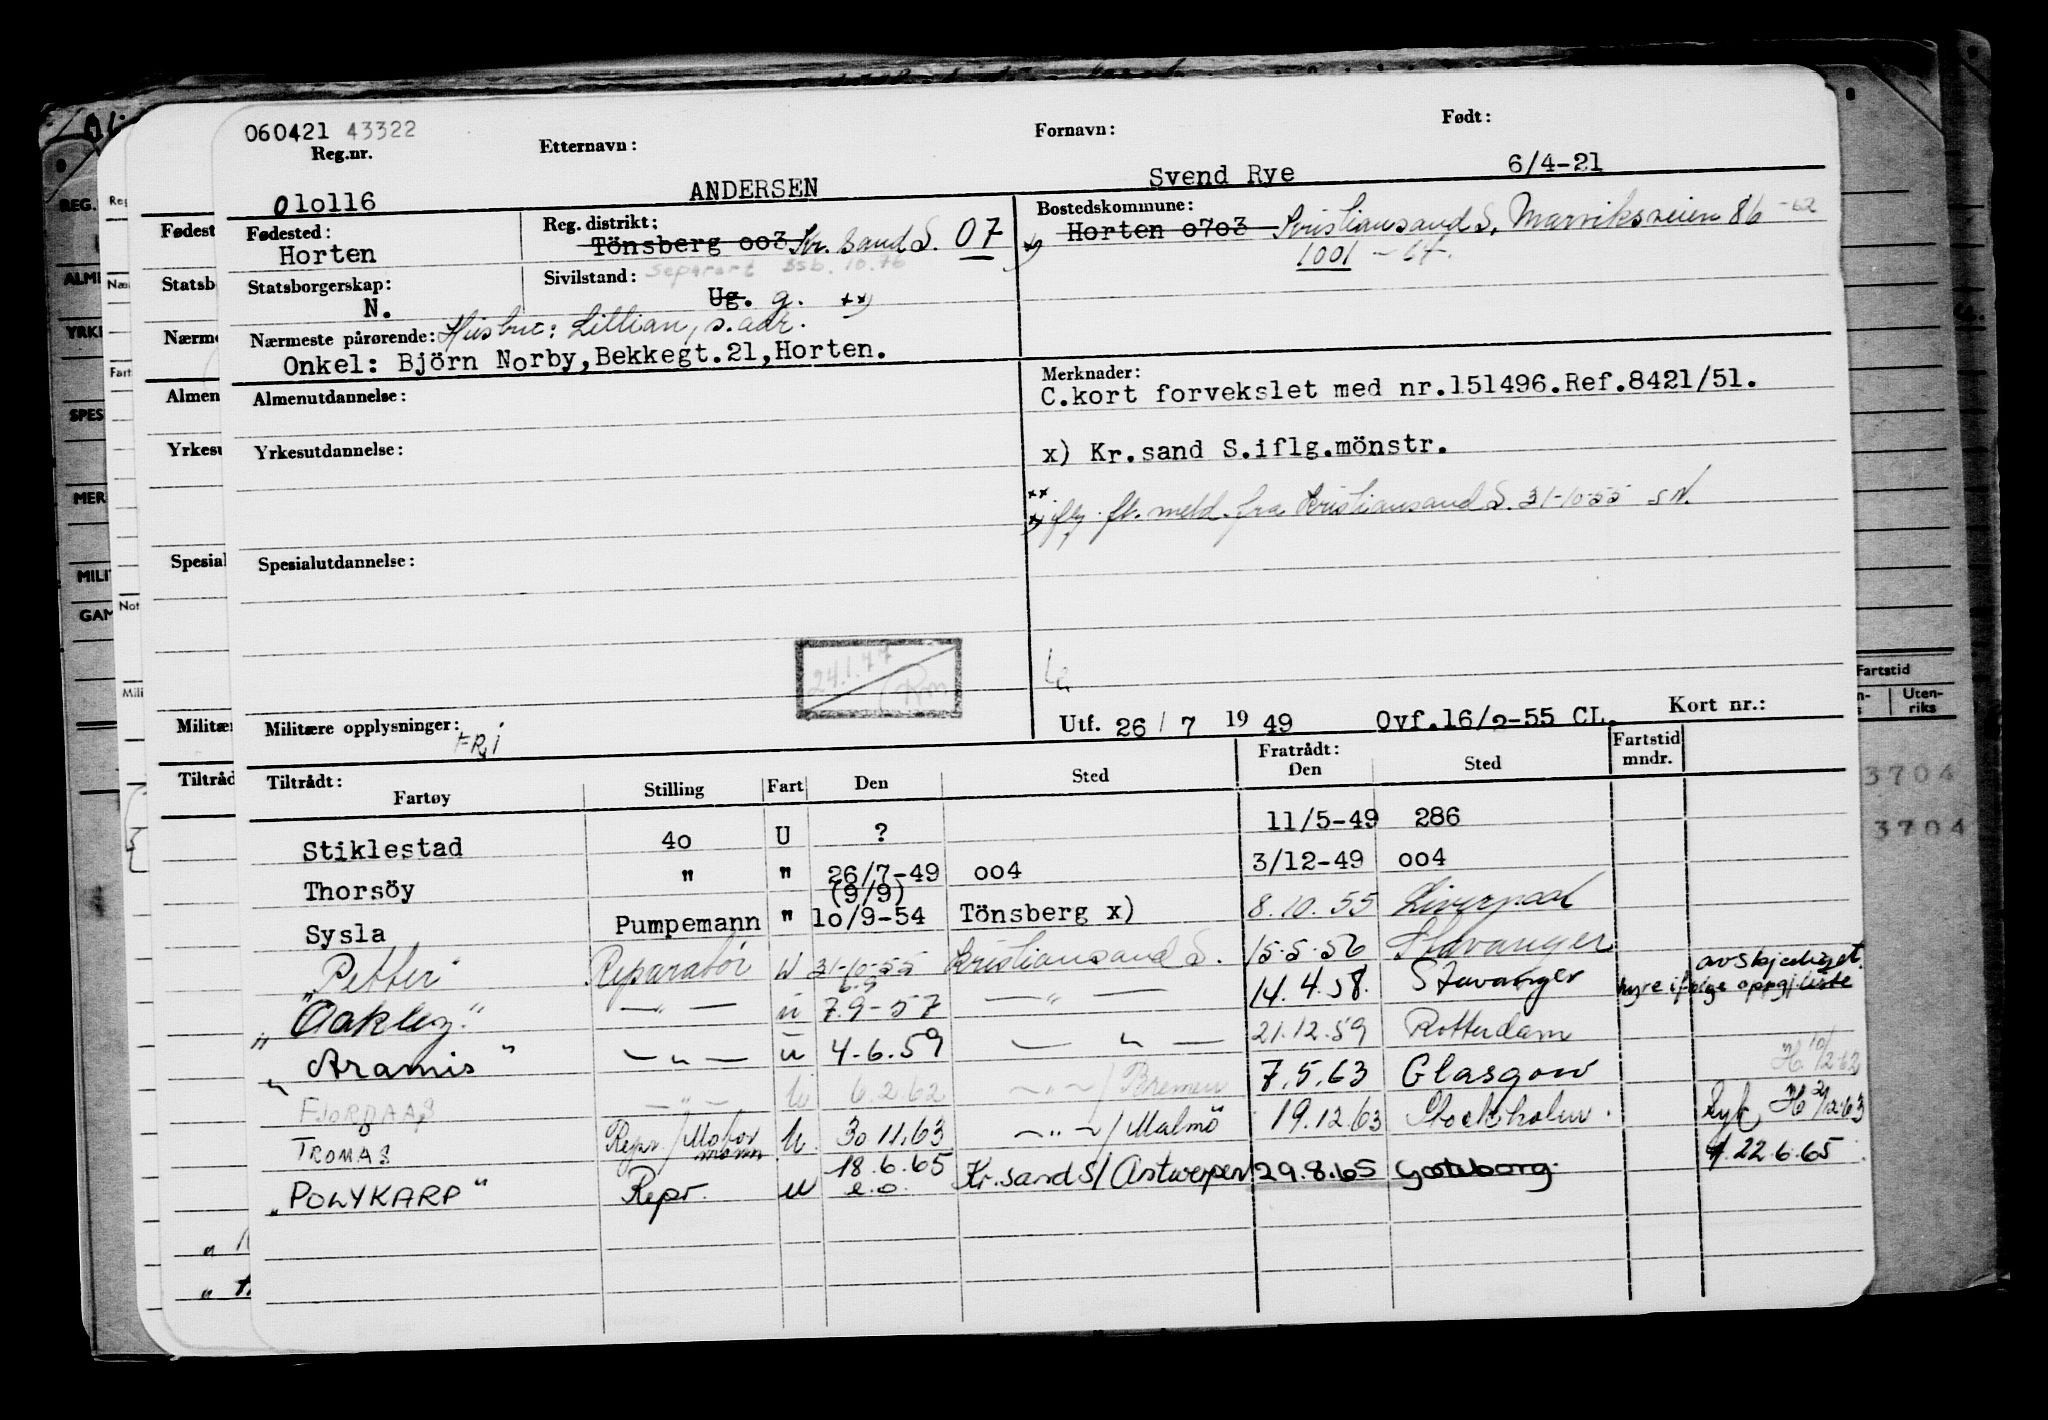 060421 43322
Reg.nr.
Etternavn:
Fornavn:
Født:
010116
ANDERSEN
Svend Rye
6/4-21
Fødested:
Horten
Reg. distrikt:
Tönsberg oo3 Kr. sand S. 07
Bostedskommune:
Horten 0703 Kristiansand S, Marviksveien 86 -62
1001 - 64.
Statsborgerskap:
N.
Sivilstand: Separert 10.76
Ug. g. **)
Nærmeste pårørende: Husbue: Lillian, s. adr.
Onkel: Björn Norby, Bekkegt.21, Horten.
Almenutdannelse:
Merknader:
C.kort forvekslet med nr.151496.Ref.8421/51.
Yrkesutdannelse:
x) Kr.sand S.iflg.mönstr.
**) iflg. meld. fra Kristiansand S. 31-10-55 SN.
Spesialutdannelse:
24.1.77
Rm
Militære opplysninger:
FRI
Utf. 26 / 7 19 49 Ovf.16/2-55 CL. Kort nr.:
Tiltrådt:
Fartøy Stilling Fart Den Sted
Fratrådt:
Den Sted
Fartstid
mndr.
Stiklestad 4o U ? 11/5-49 286
Thorsöy " " 26/7-49 oo4 3/12-49 oo4
(9/9)
Sysla Pumpemann " 1o/9-54 Tönsberg x) 8.10.55 Liverpool
"Petter" Reparatør U 31-10-55 Kristiansand S. 15-5-56 Stavanger
avskjediget
"Oakley" — " — u 7.9-57 — " — 14.4.58. Stavanger hyre ifølge oppgj.liste
"Aramis" — " — u 4-6.59 — " — 21.12.59 Rotterdam
FJORDAAS — " — U 6.2.62 — " — / Bremen 7.5.63 Glasgow H 10/2.62
TROMAS Repr./Motormann U. 30 11.63 — " — / Malmö 19.12.63 Stockholm. Ryk H 2/12.63
"POLYKARP" Repr. u 18.6.65 e.o. Kr.sand S/ Antwerpen 29.8.65 Gøteborg. 22.6.65
Fartstid
Uten-
riks
3704
3704